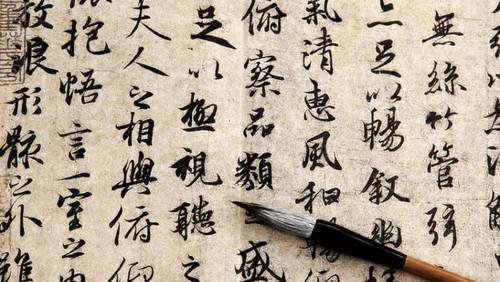 無絲竹管弦
足以暢敘幽情
氣清惠風和暢仰
俯察品類之盛
足以極視聽之
夫人之相與俯仰
抱悟言一室之內
放浪形骸之外雖